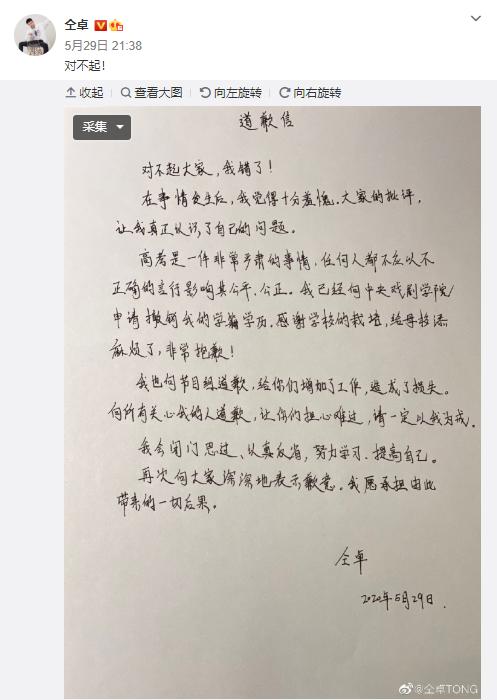 仝卓
5月29日 21:38
对不起!
收起 查看大图 向左旋转 向右旋转
采集
道歉信
对不起大家,我错了!
在事情发生后,我觉得十分羞愧。大家的批评,
让我真正认识了自己的问题。
高考是一件非常严肃的事情,任何人都不应以不
正确的言行影响其公平、公正。我已经向中央戏剧学院
申请撤销我的学籍学历。感谢学校的栽培,给母校添
麻烦了,非常抱歉!
我也向节目组道歉,给你们增加了工作,造成了损失。
向所有关心我的人道歉,让你们担心难过,请一定以我为戒。
我会闭门思过,认真反省,努力学习、提高自己。
再次向大家深深地表示歉意。我愿承担由此
带来的一切后果。
仝卓
2020年5月29日.
@仝卓TONG